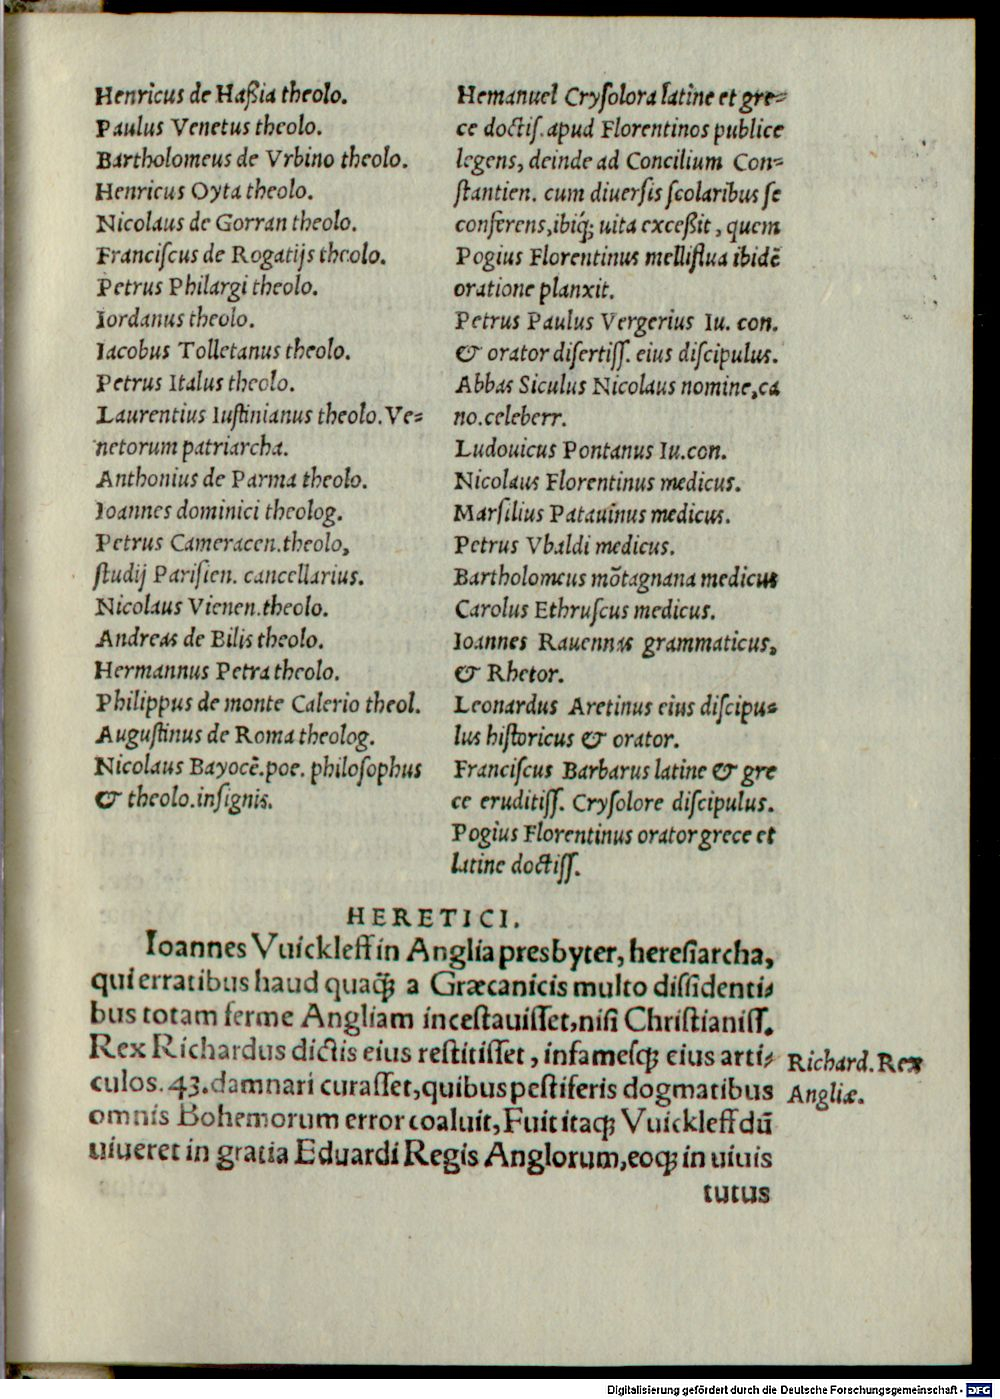 Henricus de Haßia theolo.
Paulus Venetus theolo.
Bartholomeus de Vrbino theolo.
Henricus Oyta theolo.
Nicolaus de Gorran theolo.
Franciſcus de Rogatijs theolo.
Petrus Philargi theolo.
Iordanus theolo.
Iacobus Tolletanus theolo.
Petrus Italus theolo.
Laurentius Iuſtinianus theolo. Ve=
netorum patriarcha.
Anthonius de Parma theolo.
Ioannes dominici theolog.
Petrus Cameracen. theolo,
ſtudij Pariſien. cancellarius.
Nicolaus Vienen. theolo.
Andreas de Bilis theolo.
Hermannus Petra theolo.
Philippus de monte Calerio theol.
Auguſtinus de Roma theolog.
Nicolaus Bayocẽ. poe. philoſophus
& theolo. inſignis.
Hemanuel Cryſolora latine et gre=
ce doctiſ. apud Florentinos publice
legens, deinde ad Concilium Con=
ſtantien. cum diuerſis ſcolaribus ſe
conferens, ibiq́; uita exceßit, quem
Pogius Florentinus melliflua ibidẽ
oratione planxit.
Petrus Paulus Vergerius Iu. con.
& orator diſertiſſ. eius diſcipulus.
Abbas Siculus Nicolaus nomine, ca
no. celeberr.
Ludouicus Pontanus Iu. con.
Nicolaus Florentinus medicus.
Marſilius Patauinus medicus.
Petrus Vbaldi medicus.
Bartholomeus mõtagnana medicus
Carolus Ethruſcus medicus.
Ioannes Rauennas grammaticus,
& Rhetor.
Leonardus Aretinus eius diſcipu=
lus hiſtoricus & orator.
Franciſcus Barbarus latine & gre
ce eruditiſſ. Cryſolore diſcipulus.
Pogius Florentinus orator grece et
latine doctiſſ.
HERETICI.
Ioannes Vuickleff in Anglia presbyter, hereſiarcha,
qui erratibus haud quaq̃; a Græcanicis multo diſſidenti=
bus totam ferme Angliam inceſtauiſſet, niſi Chriſtianiſſ.
Rex Richardus dictis eius reſtitiſſet, infameſq; eius arti=
culos. 43. damnari curaſſet, quibus peſtiferis dogmatibus
omnis Bohemorum error coaluit, Fuit itaq; Vuickleff dũ
uiueret in gratia Eduardi Regis Anglorum, eoq; in uiuis
tutus
Richard. Rex
Angliæ.
Digitalisierung gefördert durch die Deutsche Forschungsgemeinschaft - DFG